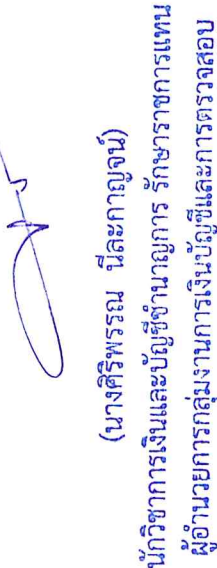 (นางศิริพรรณ นีละกาญจน์)
นักวิชาการเงินและบัญชีชำนาญการ รักษาราชการแทน
ผู้อำนวยการกลุ่มงานการเงินบัญชีและการตรวจสอบ